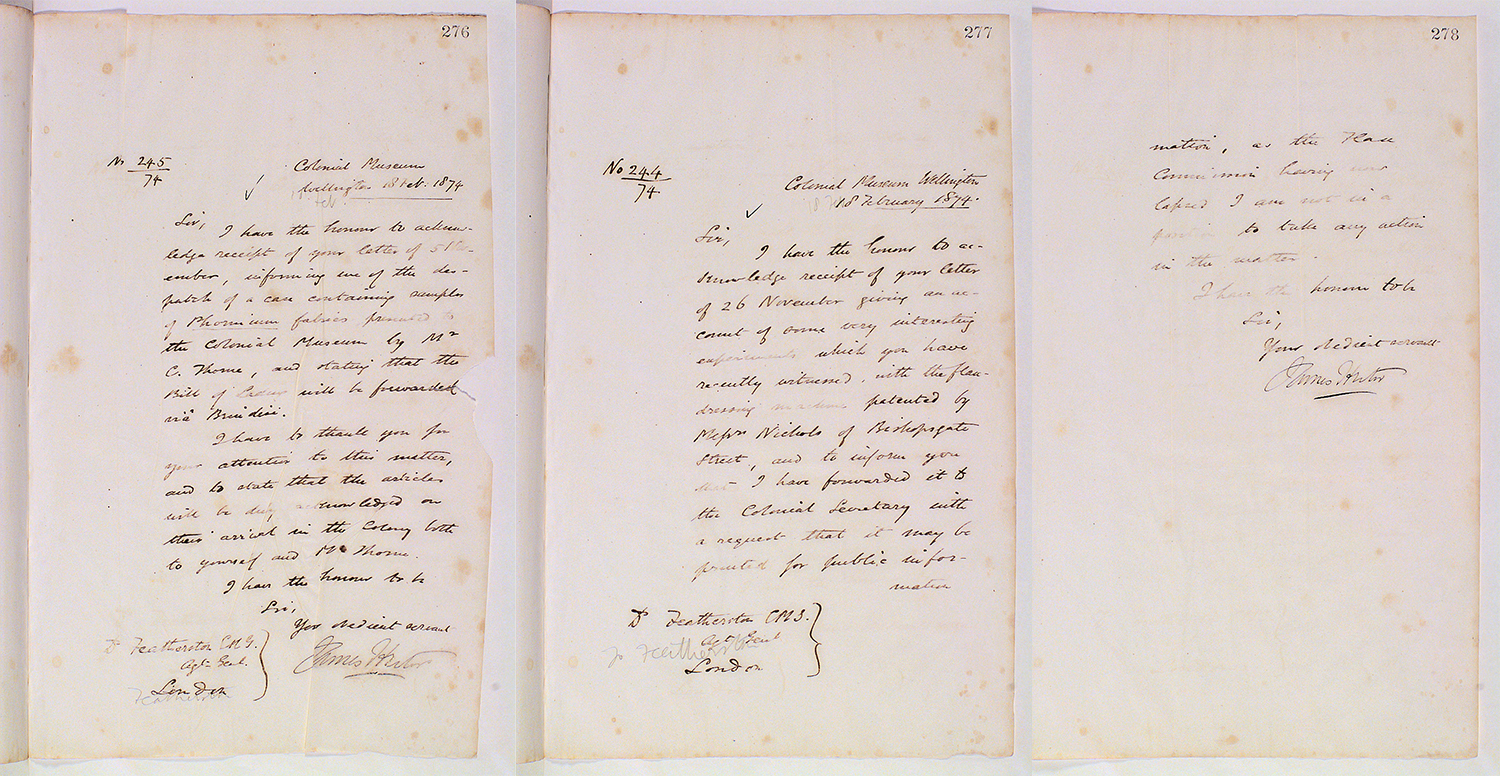 276
No 245
74
Colonial Museum
Wellington 18 Feb. 1874
Feb
Sir,
I have the honour to acknow-
ledge receipt of your letter of 5 Dec-
ember, informing me of the des-
patch of a case containing samples
of Phormium fabrics presented to
the Colonial Museum by Mr
C. Thorne, and stating that the
Bill of Lading will be forwarded
viâ Brindisi.
I have to thank you for
your attention to this matter,
and to state that the articles
will be duly acknowledged on
their arrival in the Colony both
to yourself and Mr Thorne.
I have the honour to be
Sir,
Your obedient servant
James Hector
Dr Featherston C.M.G.
Agt- Genl.
London
Featherston
277
No 244
74
Colonial Museum Wellington
18 February 1874.
Sir,
I have the honour to ac-
knowledge receipt of your letter
of 26 November giving an ac-
count of some very interesting
experiments which you have
recently witnessed, with the flax-
dressing machine patented by
Messrs Nichols of Bishopsgate
Street, and to inform you
that I have forwarded it to
the Colonial Secretary with
a request that it may be
printed for public infor-
mation
Dr Featherston C.M.G.
Agt- Genl
To Featherston
London
278
mation, as the Flax
Commission having now
lapsed I am not in a
position to take any action
in the matter.
I have the honour to be
Sir,
Your obedient servant
James Hector